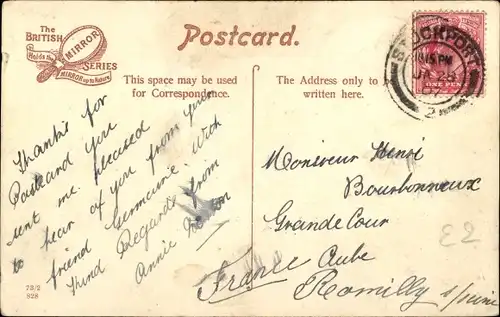 The
BRITISH
Holds the
MIRROR
SERIES
MIRROR up to Nature
Postcard.
This space may be used
for Correspondence.
The Address only to be
written here.
STOCKPORT
10.15 PM
28
07
2
ONE PENNY
Thanks for
Postcard you
sent me. pleased
to hear of you from your
friend Germaine. With
Kind Regards from
Annie
Monsieur Henri
Bourbonneux
Grande Cour
France Aube
Romilly s/seine
E2
73/2
828